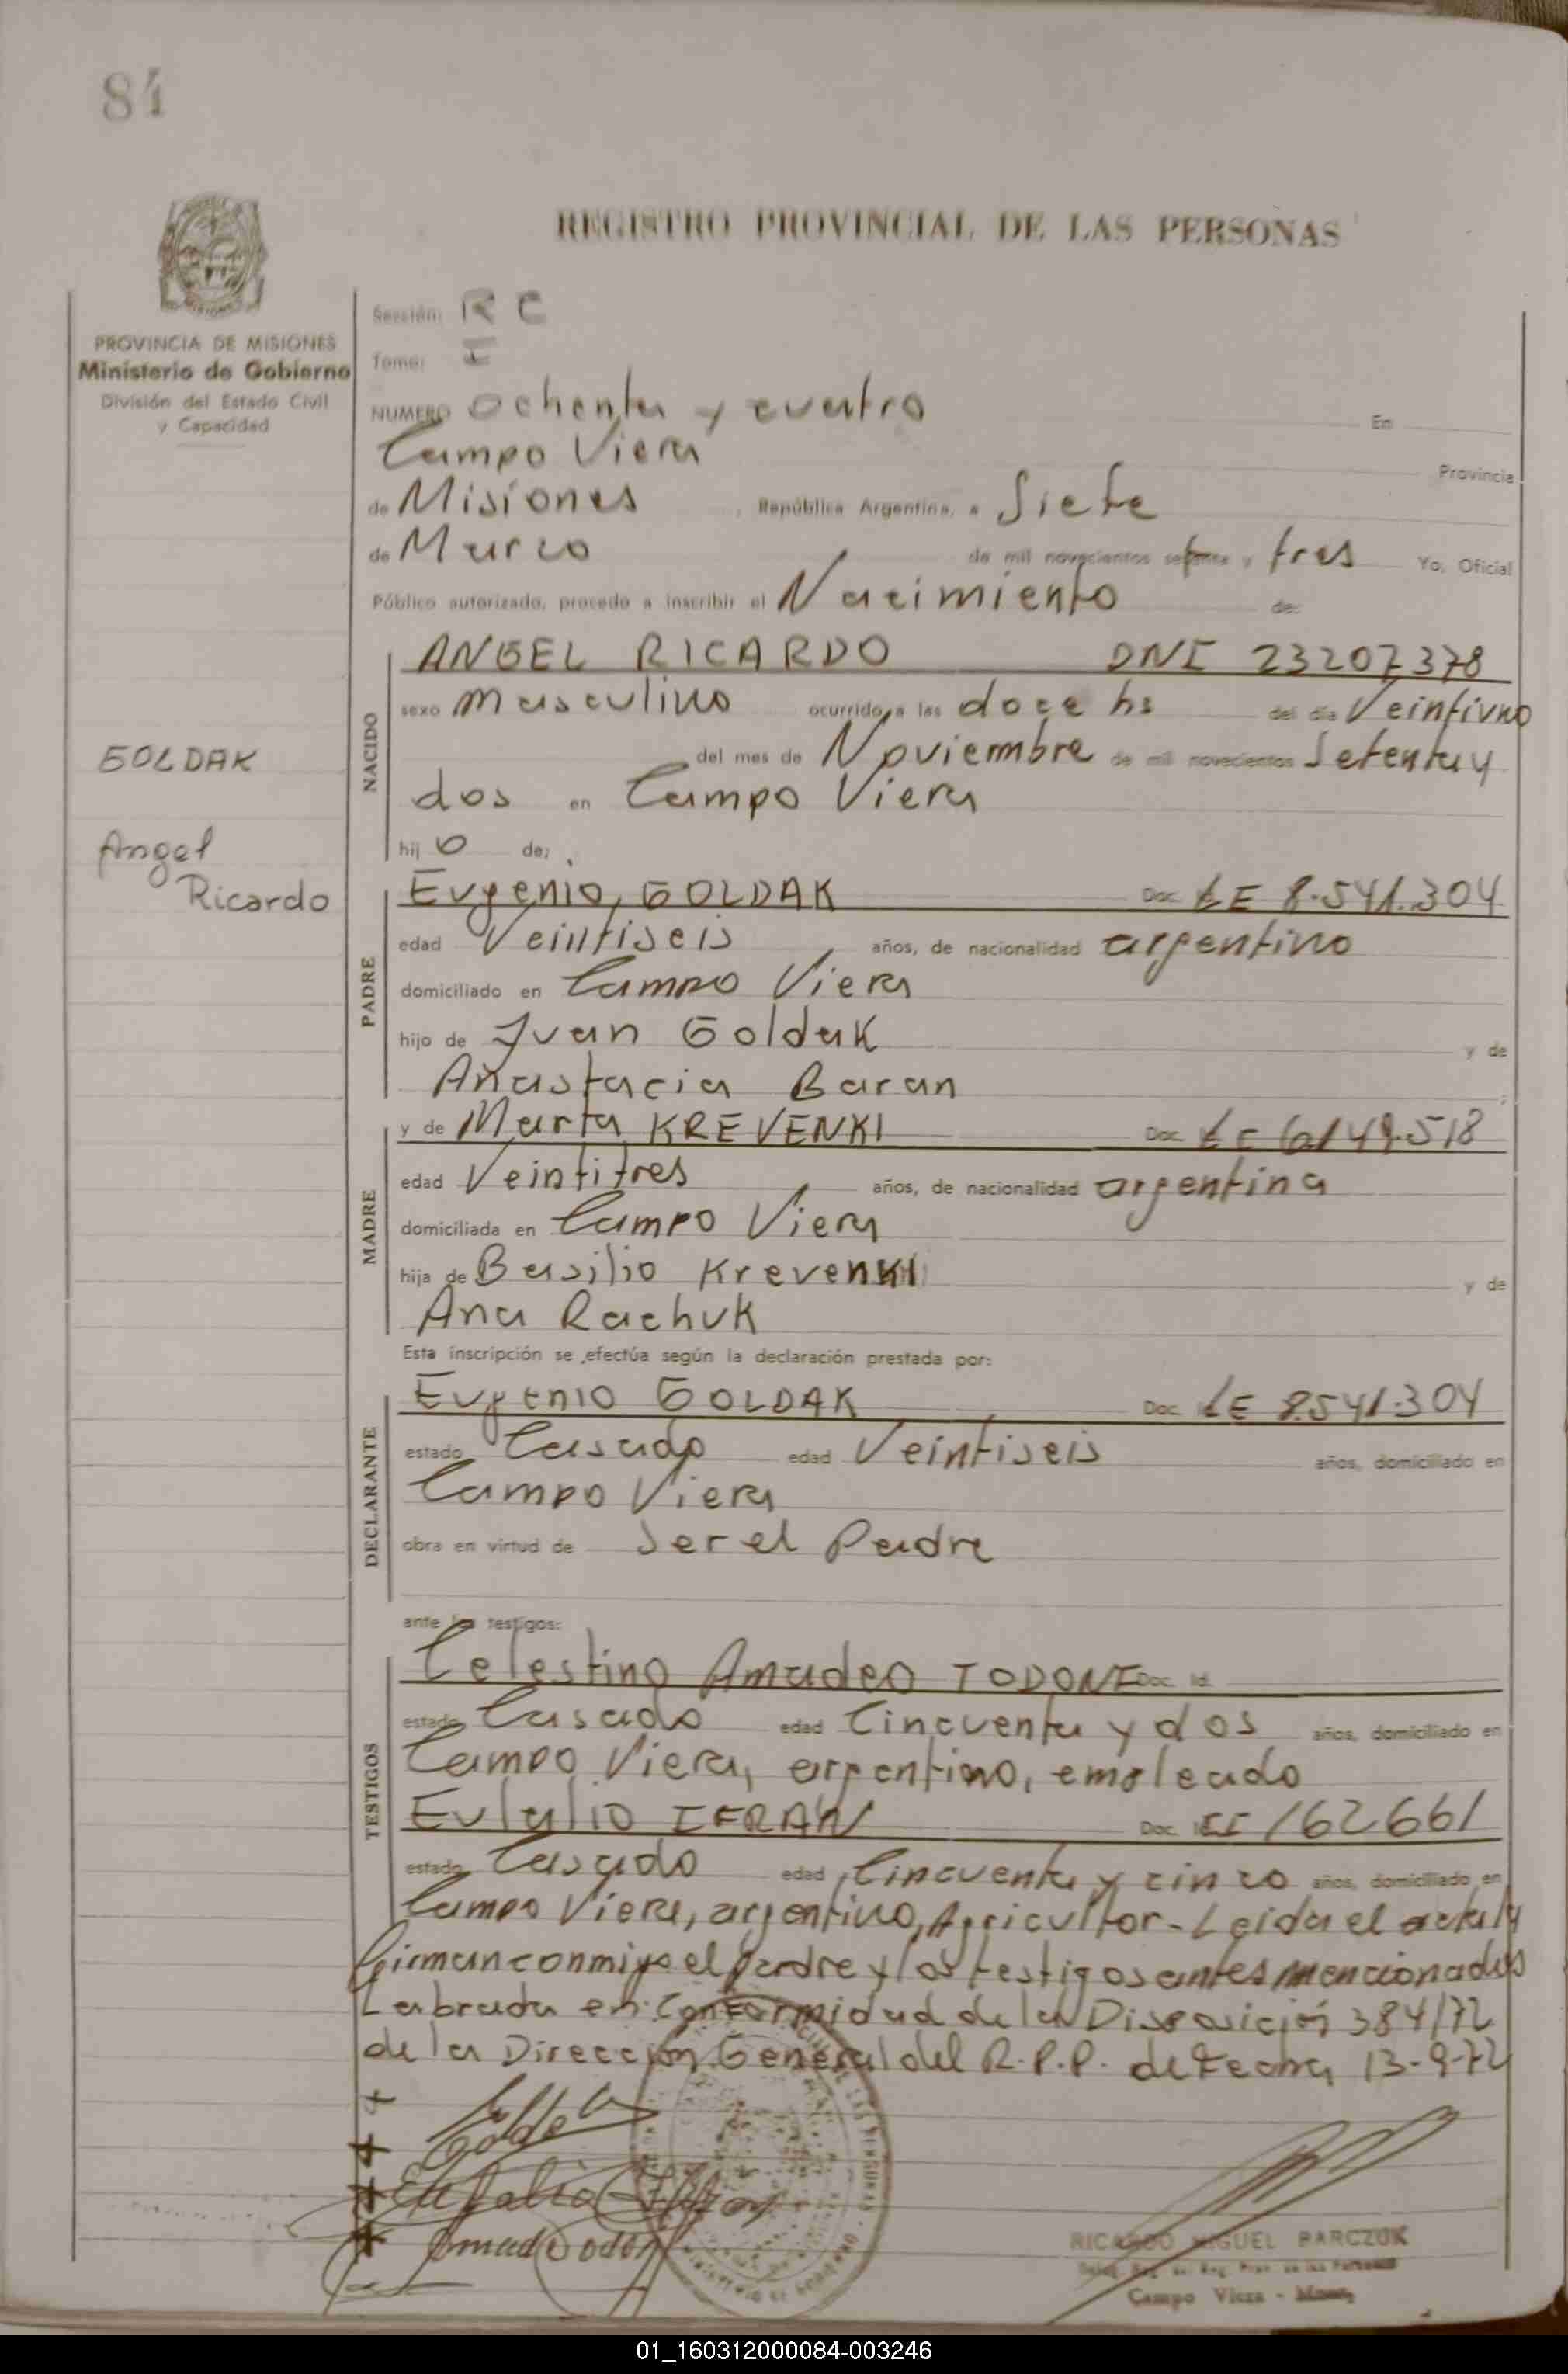 84
REGISTRO PROVINCIAL DE LAS PERSONAS
PROVINCIA DE MISIONES
Ministerio de Gobierno
División del Estado Civil
y Capacidad
Sección: R C
Tomo: I
NUMERO Ochenta y cuatro En
Campo Viera Provincia
de Misiones, República Argentina, a Siete
de Marzo de mil novecientos setenta y tres Yo, Oficial
Público autorizado, procedo a inscribir el Nacimiento de:
NACIDO
ANGEL RICARDO DNI 23207378
sexo masculino ocurrido a las doce hs del día Veintiuno
del mes de Noviembre de mil novecientos Setenta y
dos en Campo Viera
hijo de:
GOLDAK
Angel
Ricardo
PADRE
Eugenio, GOLDAK Doc. LE 8.541.304
edad Veintiseis años, de nacionalidad argentino
domiciliado en Campo Viera
hijo de Juan Goldak y de
Anastacia Baran
MADRE
y de Marta KREVENKI Doc. LC 6.149.518
edad Veintitres años, de nacionalidad argentina
domiciliada en Campo Viera
hija de Basilio Krevenki y de
Ana Rachuk
Esta inscripción se efectúa según la declaración prestada por:
DECLARANTE
Eugenio GOLDAK Doc. LE 8.541.304
estado Casado edad Veintiseis años, domiciliado en
Campo Viera
obra en virtud de Ser el Padre
ante los testigos:
TESTIGOS
Celestino Amadeo TODONI Doc. Id.
estado Casado edad Cincuenta y dos años, domiciliado en
Campo Viera, argentino, empleado
Eulalio IFRAN Doc. 162661
estado Casado edad Cincuenta y cinco años, domiciliado en
Campo Viera, argentino, Agricultor - Leida el acta la
firman conmigo el padre y los testigos antes mencionados
Labrada en Conformidad de la Disposición 384/72
de la Dirección General del R.P.P. de Fecha 13-9-72
RICARDO MIGUEL BARCZUK
Campo Viera -
01_160312000084-003246